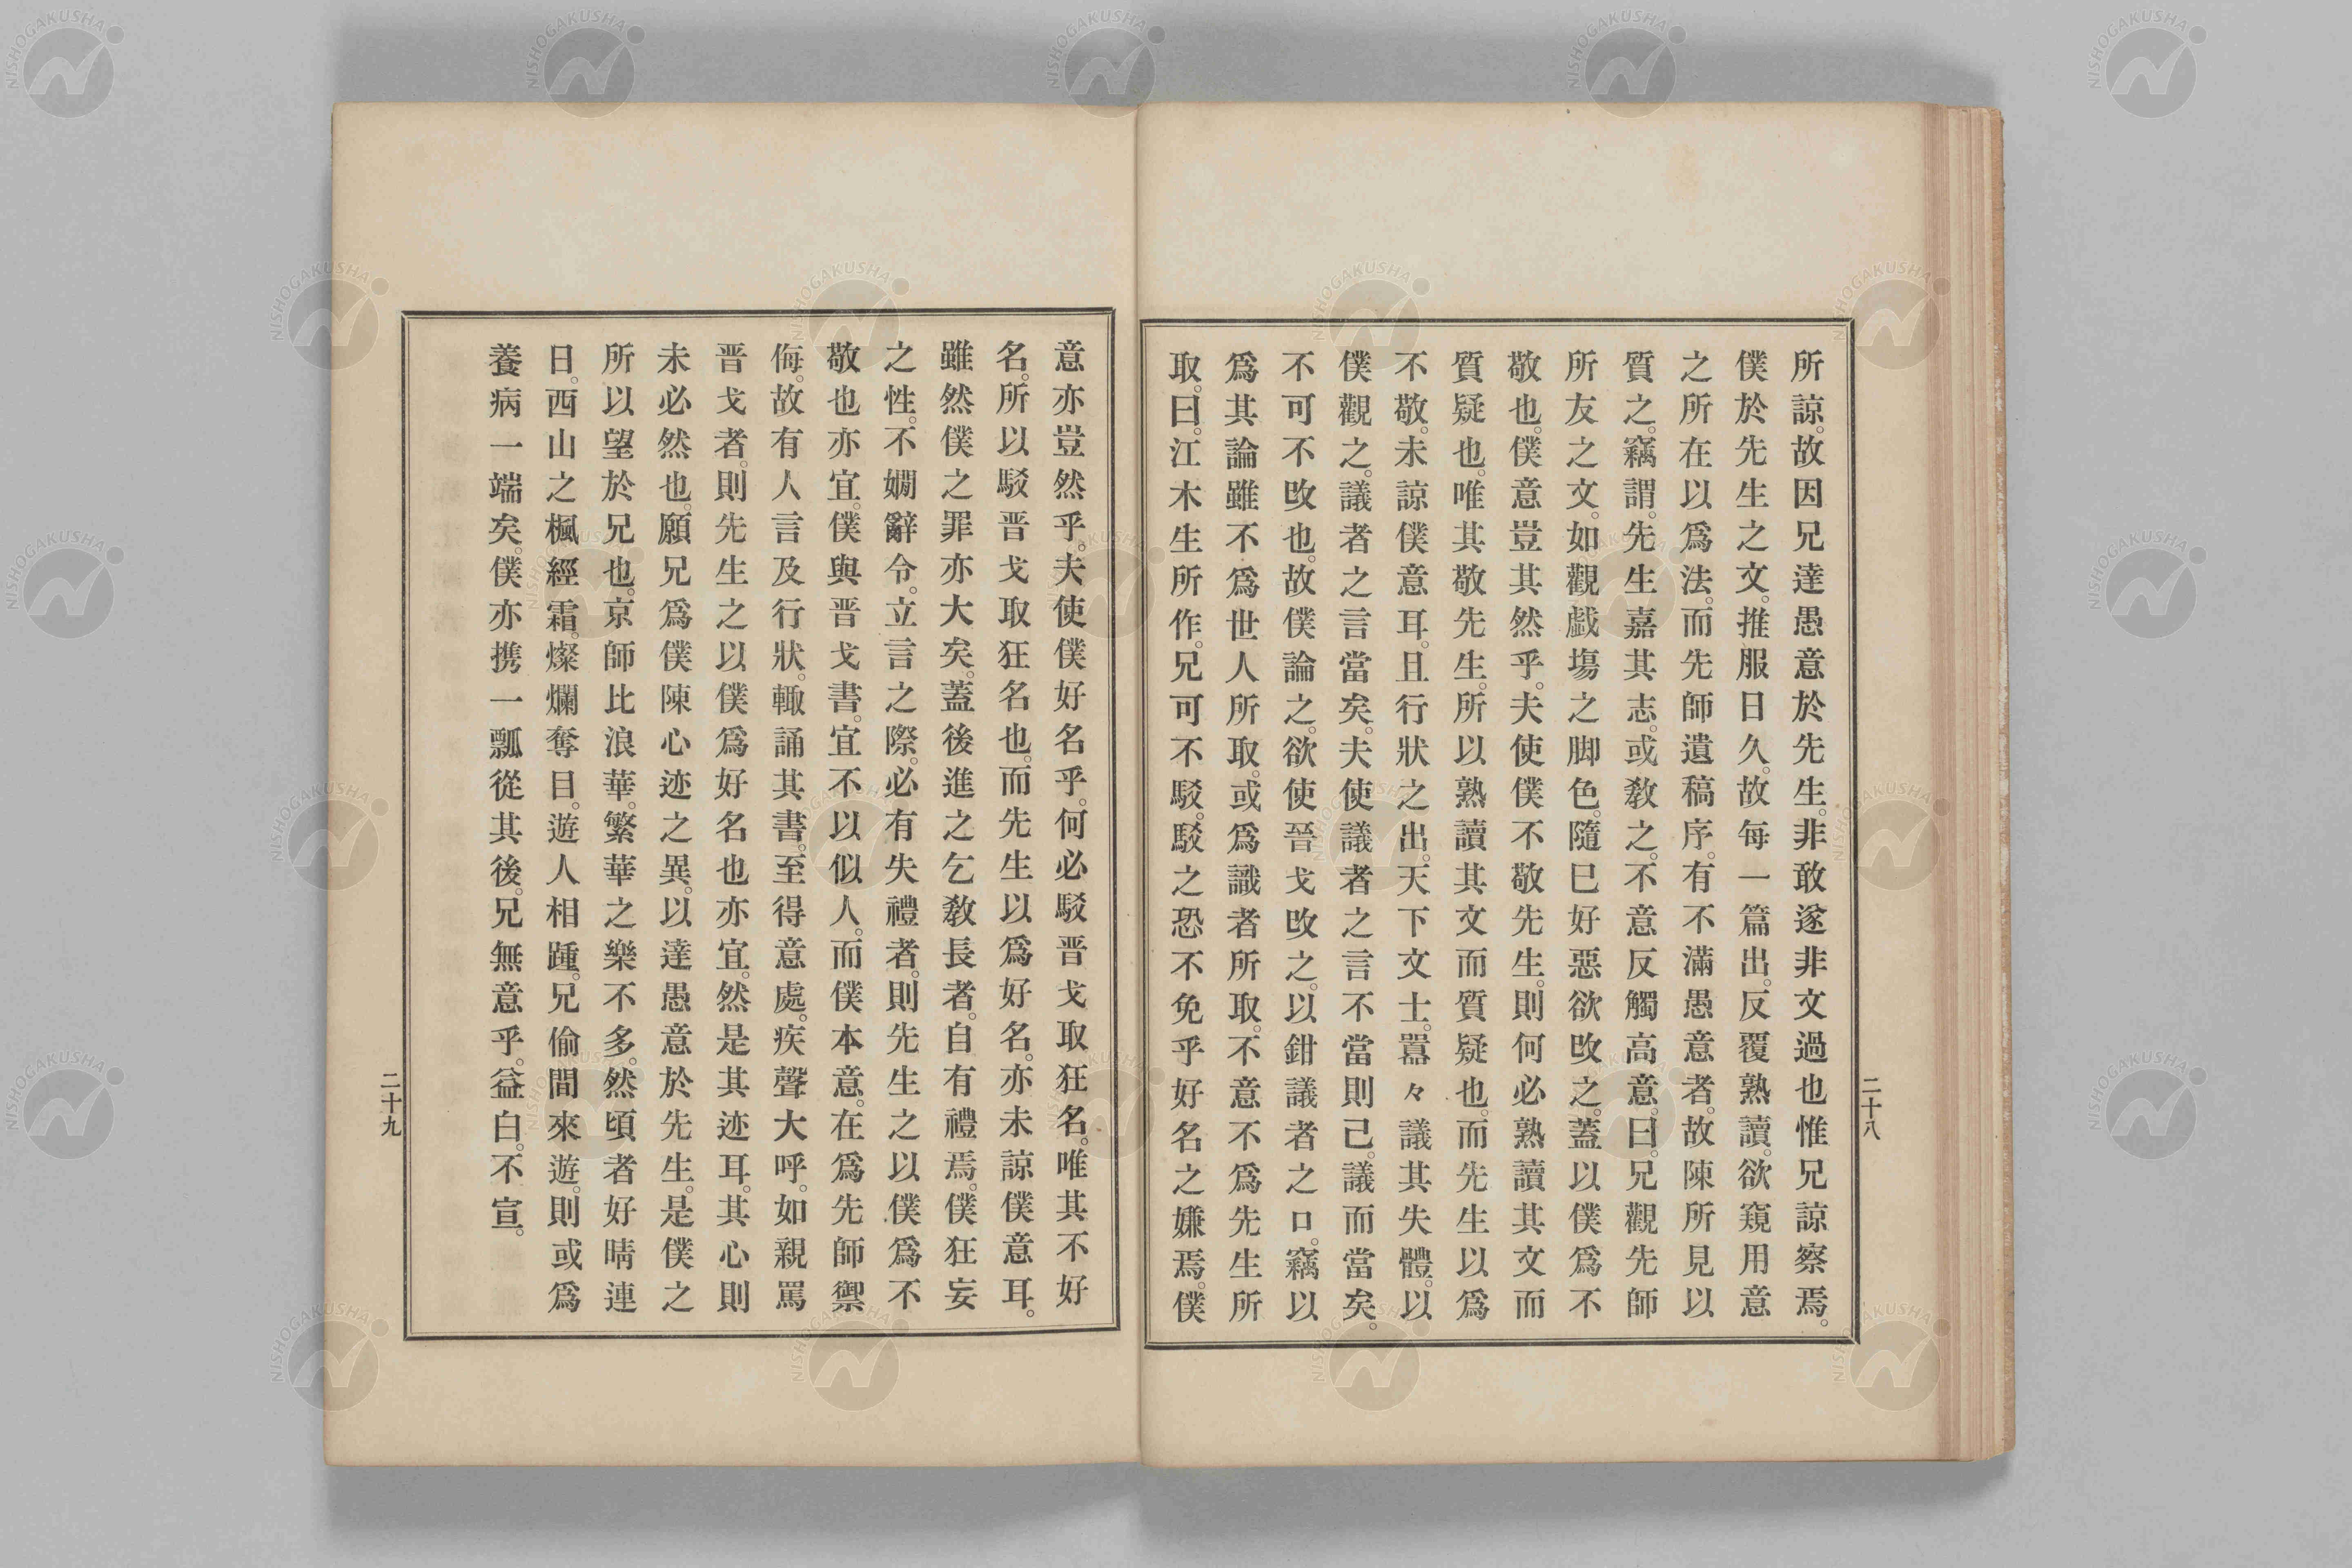 所諒。故因兄達愚意於先生。非敢遂非文過也惟兄諒察焉。
僕於先生之文。推服日久。故每一篇出。反覆熟讀。欲窺用意
之所在以爲法。而先師遺稿序。有不滿愚意者。故陳所見以
質之。竊謂。先生嘉其志。或教之。不意反觸高意。曰。兄觀先師
所友之文。如觀戯塲之脚色。隨巳好惡欲改之。蓋以僕爲不
敬也。僕意豈其然乎。夫使僕不敬先生。則何必熟讀其文而
質疑也。唯其敬先生。所以熟讀其文而質疑也。而先生以爲
不敬。未諒僕意耳。且行狀之出。天下文士。囂々議其失體。以
僕觀之。議者之言當矣。夫使議者之言不當則己。議而當矣。
不可不改也。故僕論之。欲使晉戈改之。以鉗議者之口。竊以
爲其論雖不爲世人所取。或爲識者所取。不意不爲先生所
取。曰。江木生所作。兄可不駁。駁之恐不免乎好名之嫌焉。僕
二十八
意亦豈然乎。夫使僕好名乎。何必駁晋戈取狂名。唯其不好
名。所以駁晋戈取狂名也。而先生以爲好名。亦未諒僕意耳。
雖然僕之罪亦大矣。蓋後進之乞教長者。自有禮焉。僕狂妄
之性。不嫺辭令。立言之際。必有失禮者。則先生之以僕爲不
敬也亦宜。僕與晋戈書。宜不以似人。而僕本意。在爲先師禦
侮。故有人言及行狀。輙誦其書。至得意處。疾聲大呼。如親罵
晋戈者。則先生之以僕爲好名也亦宜。然是其迹耳。其心則
未必然也。願兄爲僕陳心迹之異。以達愚意於先生。是僕之
所以望於兄也。京師比浪華。繁華之樂不多。然頃者好晴連
日。西山之楓經霜。燦爛奪目。遊人相踵。兄偷間來遊。則或爲
養病一端矣。僕亦携一瓢從其後。兄無意乎。益白。不宣。
二十九
NISHOGAKUSHA